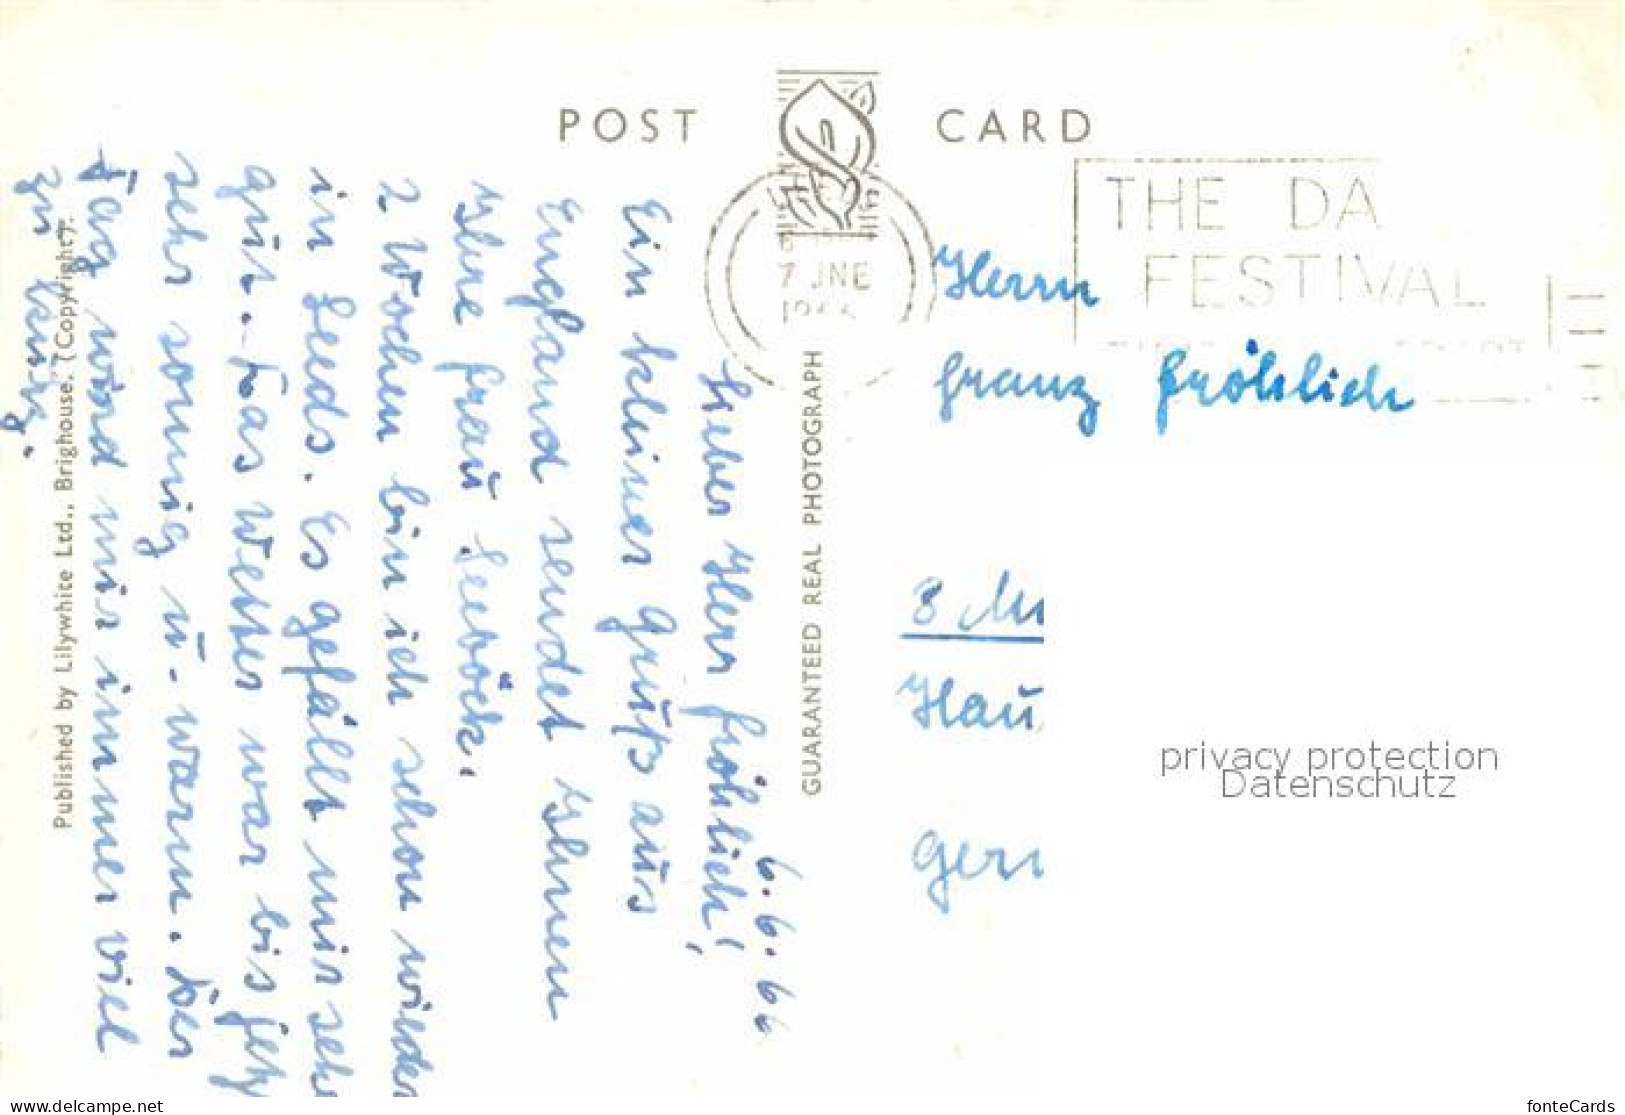 POST CARD
THE DA
FESTIVAL
7 JNE
1966
6.6.66
Lieber Herr Fröhlich!
Ein kleiner Gruß aus
England sendet Ihnen
Ihre Frau Seeböck.
2 Wochen bin ich schon wieder
in Leeds. Es gefällt mir seh
gut. Das Wetter war bis jetz
sehr sonnig u. warm. Der
Tag wird mir immer viel
zu kurz.
Published by Lilywhite Ltd., Brighouse. (Copyright).
GUARANTEED REAL PHOTOGRAPH
Herrn
Franz Fröhlich
8 Mü
Hau
Ger
privacy protection
Datenschutz
www.delcampe.net
fonteCards